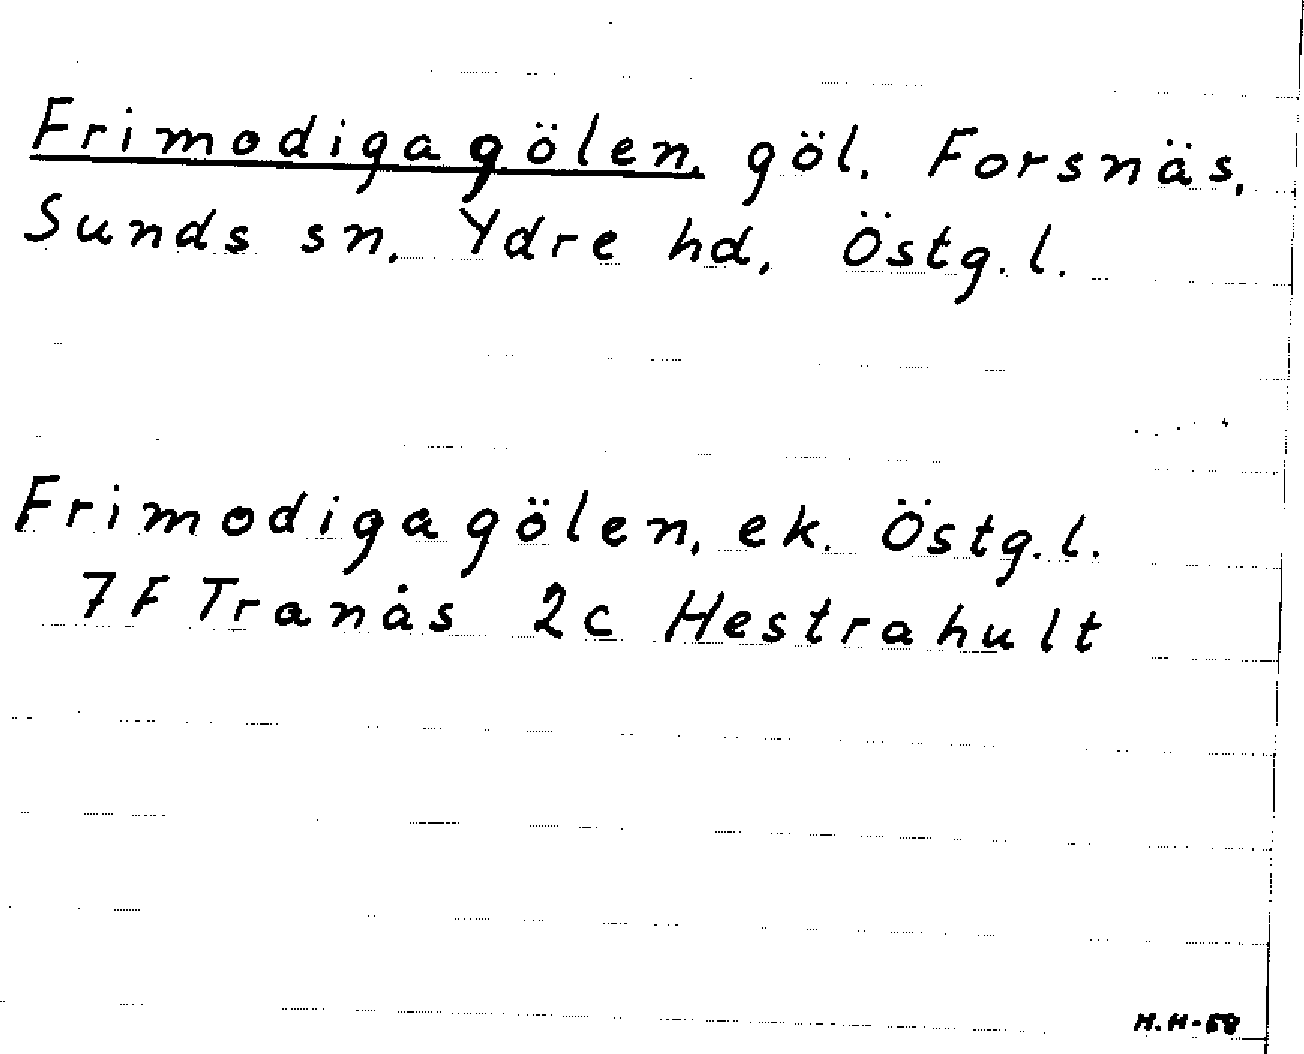 Frimodigagölen, göl. Forsnäs,
Sunds sn, Ydre hd, Östg. l.
Frimodigagölen, ek. Östg. l.
7F Tranås 2c Hestrahult
H.H-58